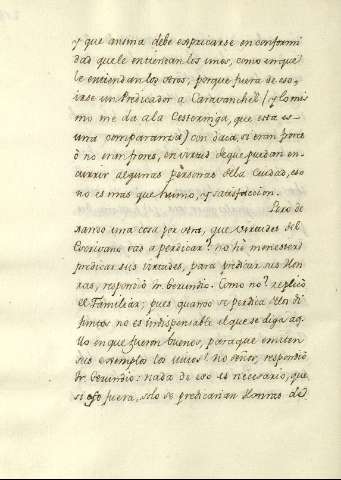 y que ansina debe expricarse en conformi
dad que le entiendan los unos, como in que
le entiendan los otros; porque fuera de eso,
irse un Predicador a Caravanchel (y lo mis
mo me da a la Cestorniga, que esta es
una comparanza) con daca, si eran frores
ò no eran frores, en virtud de que puedan en-
currir algunas personas de la Ciudad, eso
no es mas que humo, y satisfaccion.
Pero de
xando una cosa por otra, que virtudes del
Escrivano vas a perdicar? no hè menester
predicar sus virtudes, para predicar sus Hon
ras, respondiò fr. Gerundio. Como no? replicò
el Familiar; pues quando se perdica de los di
funtos no es indispensable el que se diga aq.
llo en que fueron buenos, para que emiten
sus exemplos los vivos? no señor, respondiò
fr. Gerundio: nada de eso es necesario, que
si eso fuera, solo se predicarian Honras de